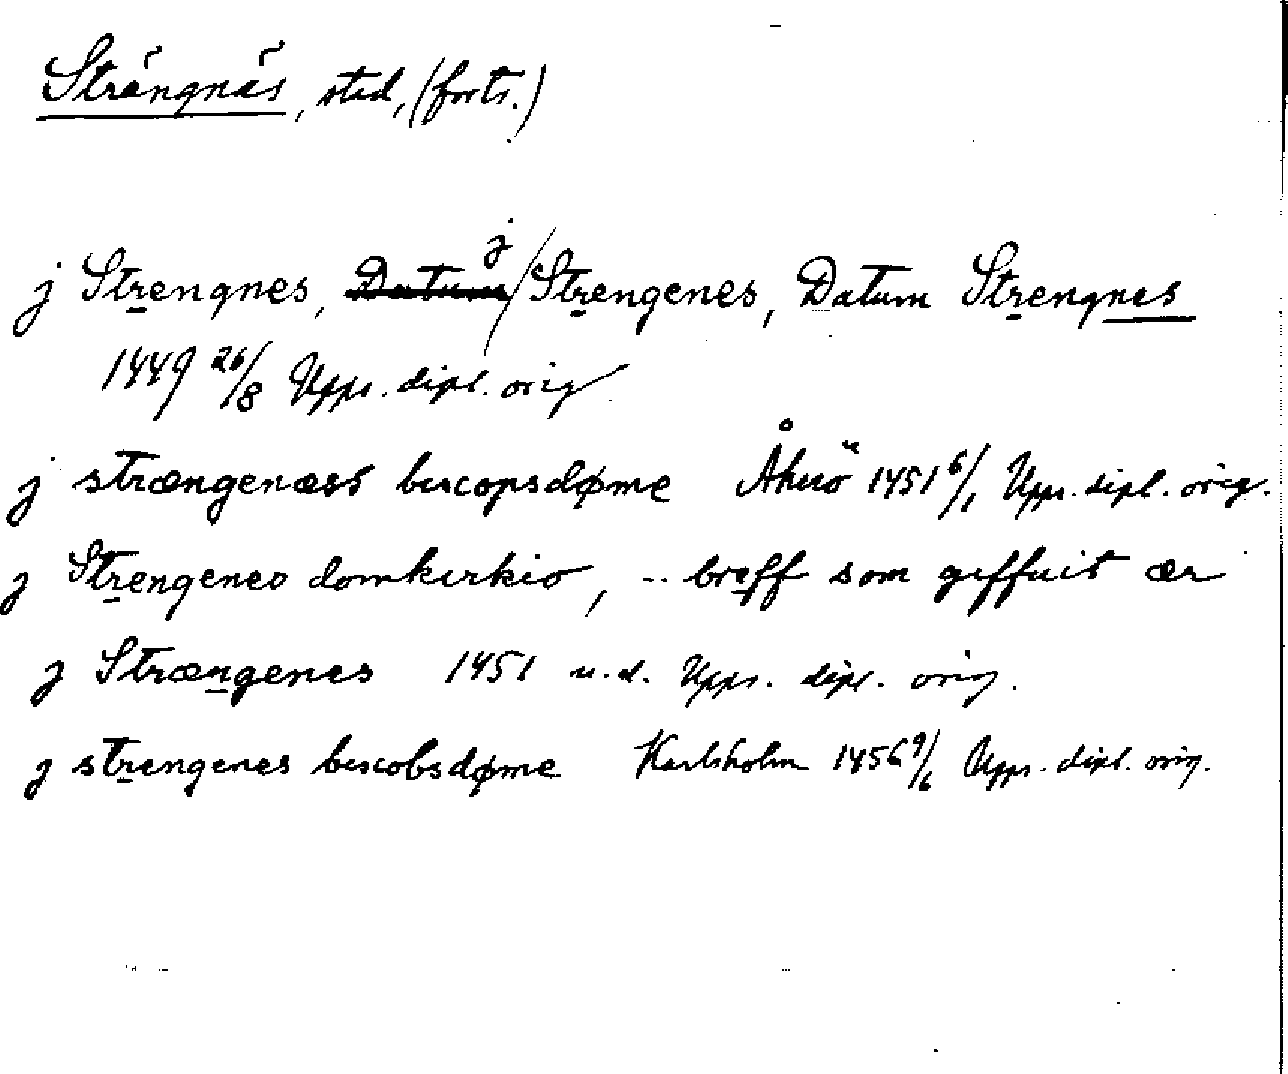 Strängnäs, sted, (forts.)
j Strengnes, ~~Datum~~ j Strengenes, Datum Strengnes
1449 26/8 Upps. dipl. orig
j strængenæss biscopsdøme Åkerö 1451 6/1 Upps. dipl. orig.
j Strengenes domkirkio, -- breff som giffuit ær
j Strængenes 1451 u.d. Upps. dipl. orig.
j strengenes biscobsdøme Karlsholm 1456 9/6 Upps. dipl. orig.